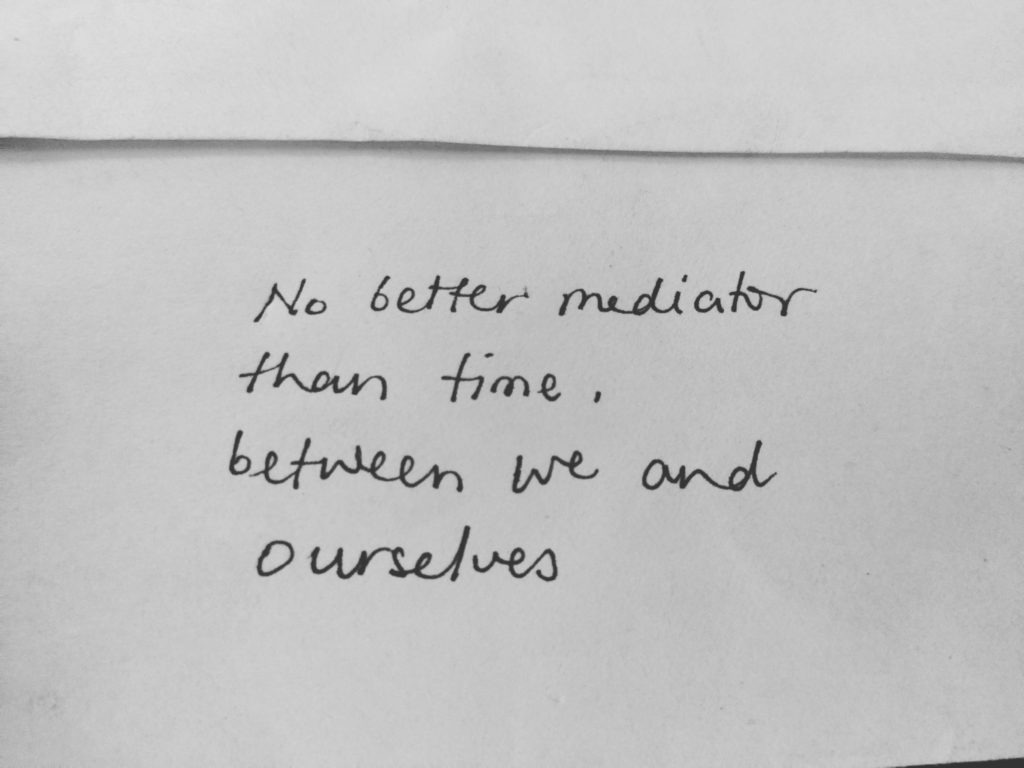 No better mediator
than time,
between we and
ourselves